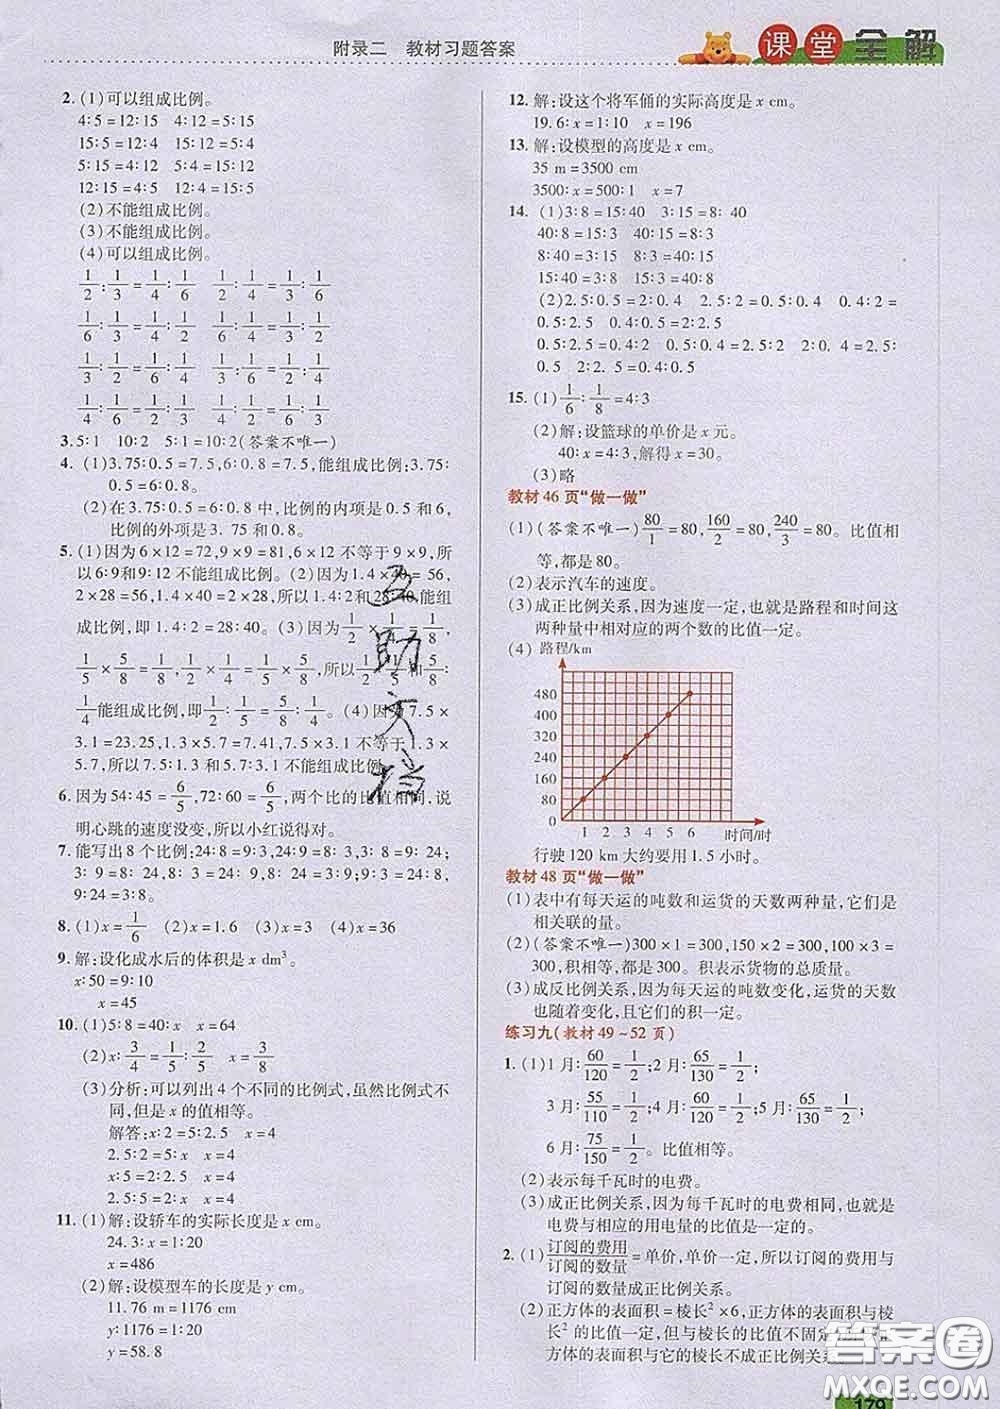 附录二 教材习题答案
课堂全解
2. (1)可以组成比例。
4∶5=12∶15 4∶12=5∶15
15∶5=12∶4 15∶12=5∶4
5∶15=4∶12 5∶4=15∶12
12∶15=4∶5 12∶4=15∶5
(2)不能组成比例。
(3)不能组成比例。
(4)可以组成比例。
1/2∶1/3=1/4∶1/6 1/2∶1/4=1/3∶1/6
1/6∶1/3=1/4∶1/2 1/6∶1/4=1/3∶1/2
1/3∶1/2=1/6∶1/4 1/3∶1/6=1/2∶1/4
1/4∶1/6=1/2∶1/3 1/4∶1/2=1/6∶1/3
3. 5∶1 10∶2 5∶1=10∶2(答案不唯一)
4. (1)3.75∶0.5=7.5,6∶0.8=7.5,能组成比例;3.75∶
0.5=6∶0.8。
(2)在 3.75∶0.5=6∶0.8 中,比例的内项是 0.5 和 6,
比例的外项是 3.75 和 0.8。
5. (1)因为 6×12=72,9×9=81,6×12 不等于 9×9,所
以 6∶9 和 9∶12 不能组成比例。(2)因为 1.4×40=56,
2×28=56,1.4×40=2×28,所以 1.4∶2 和 28∶40 能组
成比例,即 1.4∶2=28∶40。(3)因为 1/2×1/4=1/8,
1/5×5/8=1/8,1/2×1/4=1/5×5/8,所以 1/2∶1/5 和 5/8∶
1/4 能组成比例,即 1/2∶1/5=5/8∶1/4。(4)因为 7.5×
3.1=23.25,1.3×5.7=7.41,7.5×3.1 不等于 1.3×
5.7,所以 7.5∶1.3 和 5.7∶3.1 不能组成比例。
6. 因为 54∶45=6/5,72∶60=6/5,两个比的比值相同,说
明心跳的速度没变,所以小红说得对。
7. 能写出 8 个比例:24∶8=9∶3,3∶9=8∶24,
3∶8=9∶24,8∶3=24∶9,24∶9=8∶3,9∶3=24∶8,
9∶24=3∶8。
8. (1)x=1/6 (2)x=1.6 (3)x=3 (4)x=36
9. 解:设化成水后的体积是 x dm³。
x∶50=9∶10
x=45
10. (1)5∶8=40∶x x=64
(2)x∶3/4=1/5∶2/5 x=3/8
(3)分析:可以列出 4 个不同的比例式,虽然比例式不
同,但是 x 的值相等。
解答:x∶2=5∶2.5 x=4
2.5∶5=2∶x x=4
x∶5=2∶2.5 x=4
2.5∶2=5∶x x=4
11. (1)解:设轿车的实际长度是 x cm。
24.3∶x=1∶20
x=486
(2)解:设模型车的长度是 y cm。
11.76 m=1176 cm
y∶1176=1∶20
y=58.8
12. 解:设这个将军俑的实际高度是 x cm。
19.6∶x=1∶10 x=196
13. 解:设模型的高度是 x cm。
35 m=3500 cm
3500∶x=500∶1 x=7
14. (1)3∶8=15∶40 3∶15=8∶40
40∶8=15∶3 40∶15=8∶3
8∶40=3∶15 8∶3=40∶15
15∶40=3∶8 15∶3=40∶8
(2)2.5∶0.5=2∶0.4 2.5∶2=0.5∶0.4 0.4∶2=
0.5∶2.5 0.4∶0.5=2∶2.5
0.5∶2.5=0.4∶2 0.5∶0.4=2.5∶2 2∶2.5=
0.4∶0.5 2∶0.4=2.5∶0.5
15. (1)1/6∶1/8=4∶3
(2)解:设篮球的单价是 x 元。
40∶x=4∶3,解得 x=30。
(3)略
教材 46 页“做一做”
(1)(答案不唯一)80/1=80,160/2=80,240/3=80。比值相
等,都是 80。
(2)表示汽车的速度。
(3)成正比例关系,因为速度一定,也就是路程和时间这
两种量中相对应的两个数的比值一定。
(4) 路程/km
480
400
320
240
160
80
0 1 2 3 4 5 6 时间/时
行驶 120 km 大约要用 1.5 小时。
教材 48 页“做一做”
(1)表中有每天运的吨数和运货的天数两种量,它们是
相关联的量。
(2)(答案不唯一)300×1=300,150×2=300,100×3=
300,积相等,都是 300。积表示货物的总质量。
(3)成反比例关系,因为每天运的吨数变化,运货的天数
也随着变化,且它们的积一定。
练习九(教材 49~52 页)
1. (1)1 月:60/120=1/2;2 月:65/130=1/2;
3 月:55/110=1/2;4 月:60/120=1/2;5 月:65/130=1/2;
6 月:75/150=1/2。比值相等。
(2)表示每千瓦时的电费。
(3)成正比例关系,因为每千瓦时的电费相同,也就是
电费与相应的用电量的比值是一定的。
2. (1)订阅的费用/订阅的数量=单价,单价一定,所以订阅的费用与
订阅的数量成正比例关系。
(2)正方体的表面积=棱长²×6,正方体的表面积与棱
长²的比值一定,但与棱长的比值不固定,
方体的表面积与它的棱长不成正比例关系。
179
答案圈
MXQE.COM